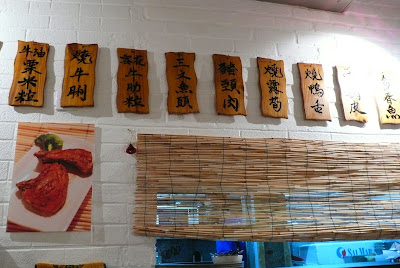 牛油粟米粒
燒牛脷
牛肋粒
三文魚頭
豬頸肉
燒露筍
燒鴨舌
皮
魚